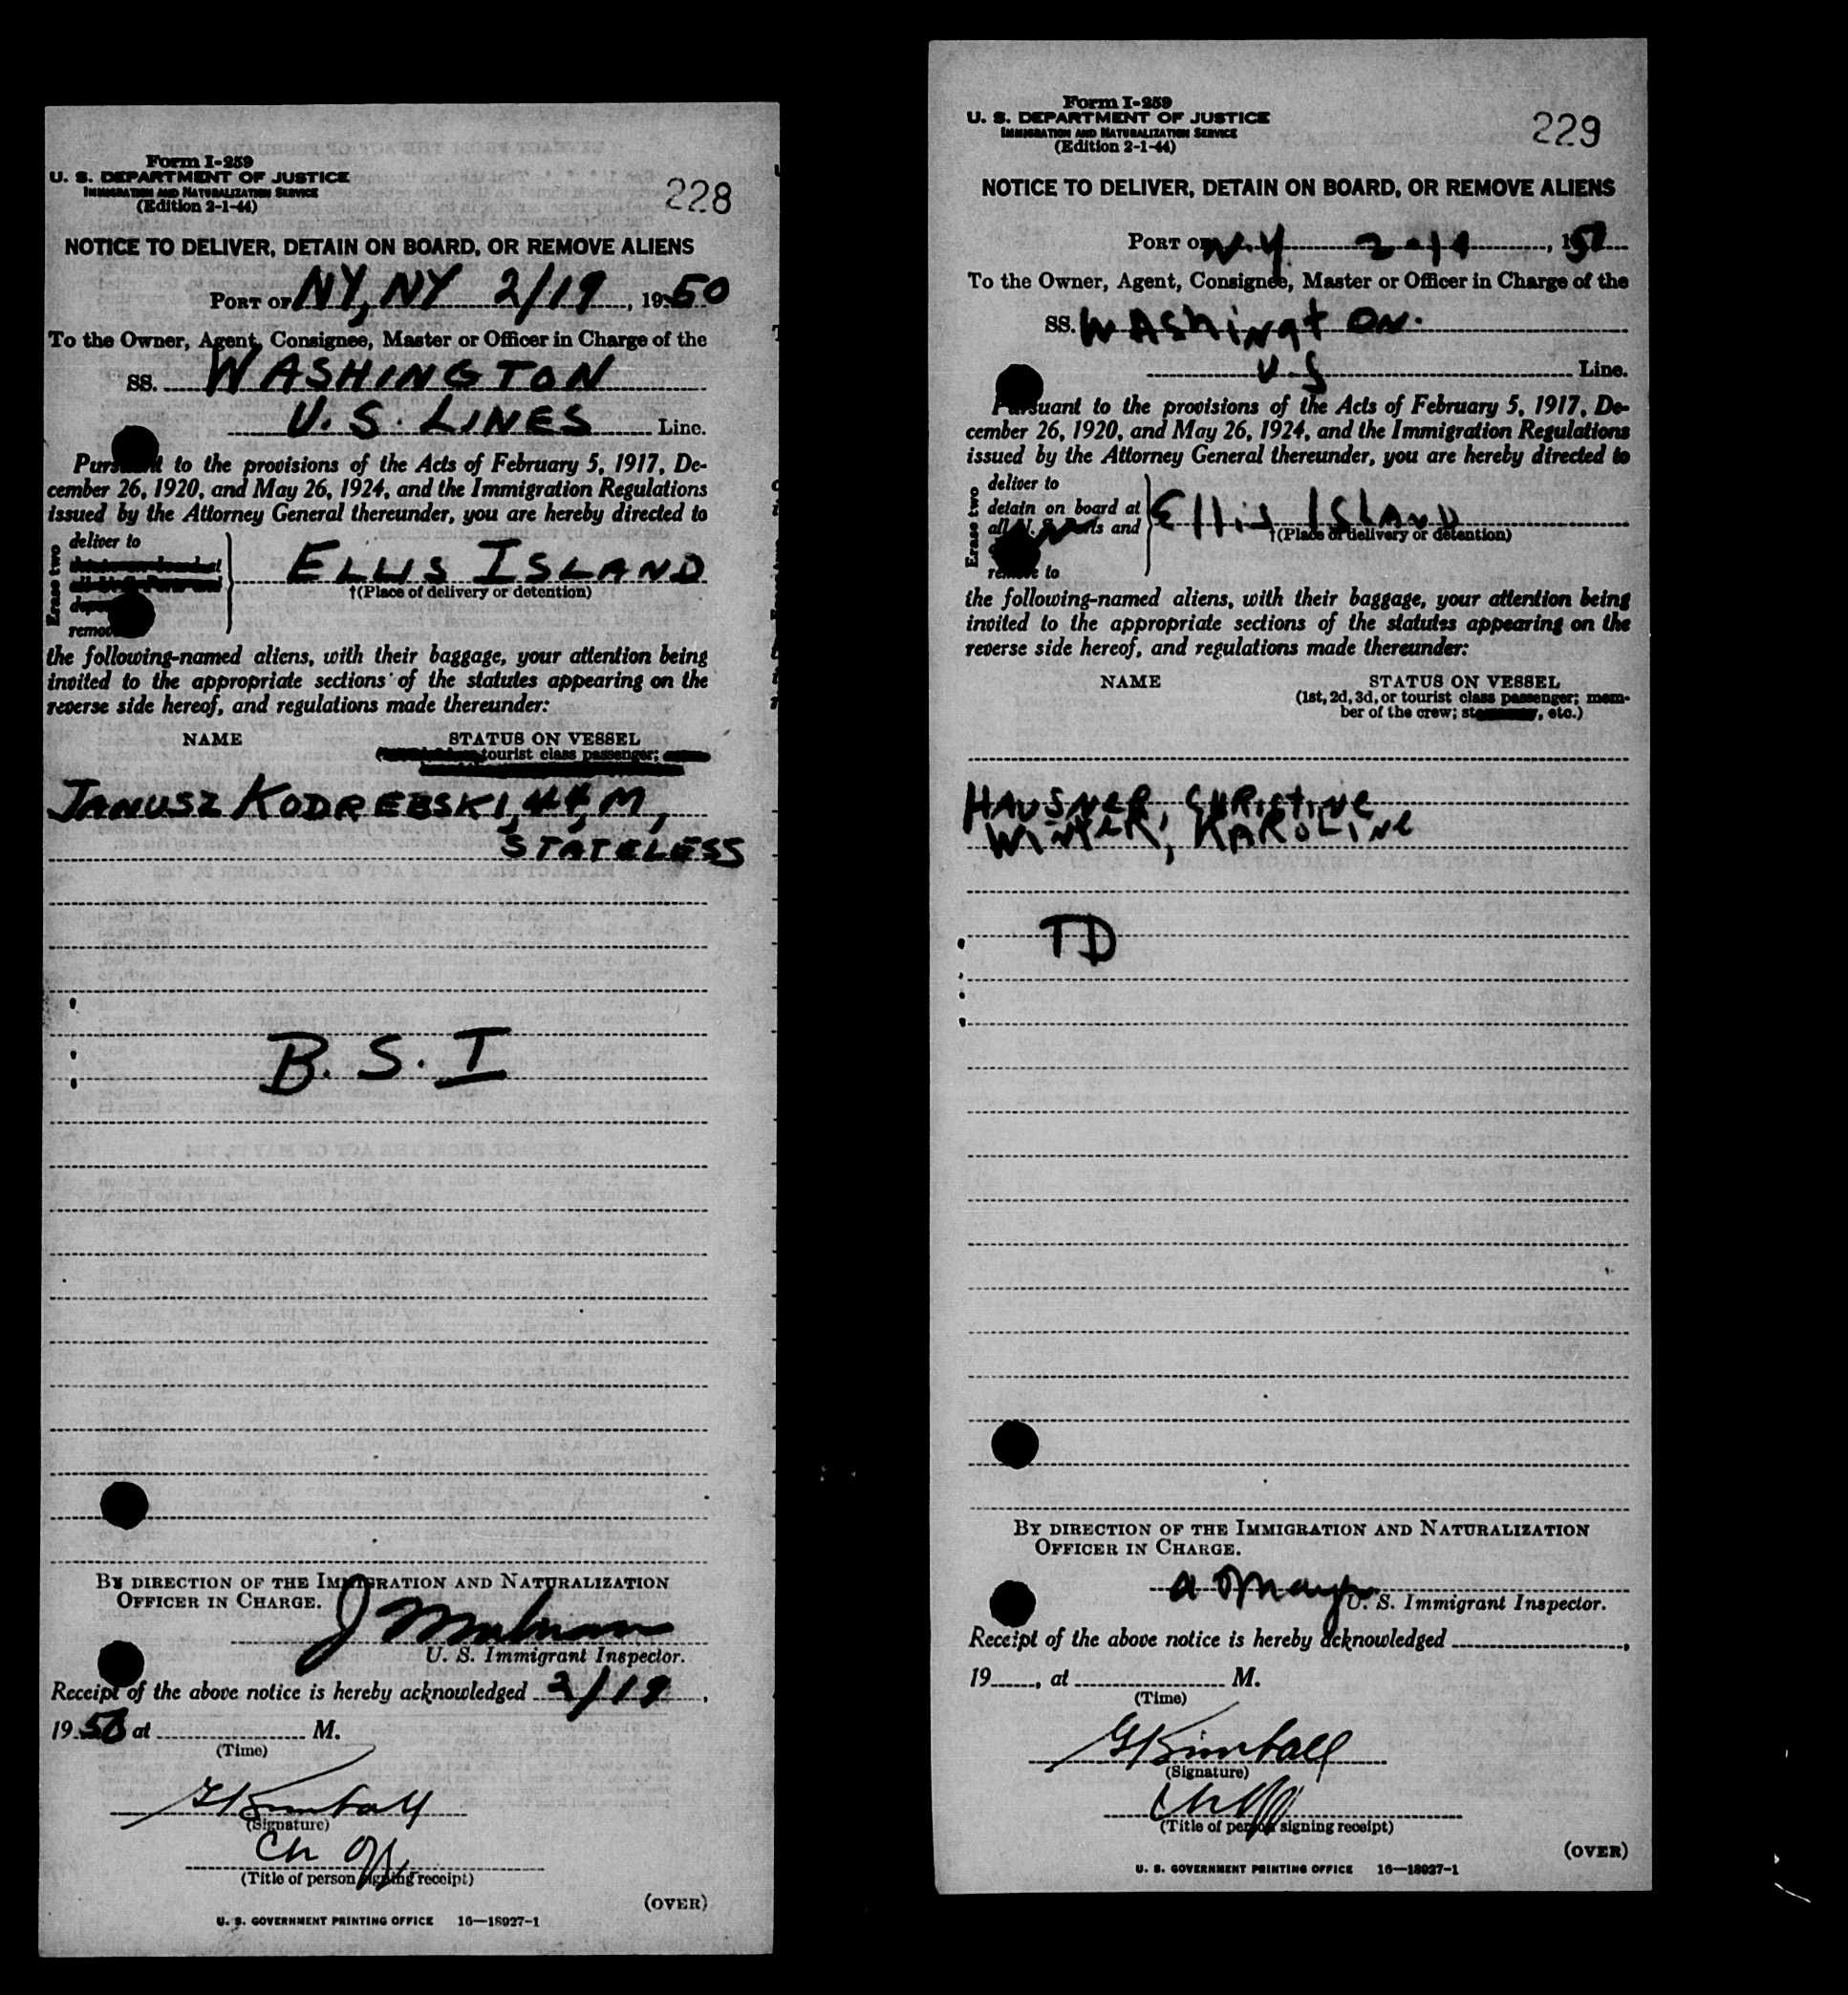 Form I-259
U. S. DEPARTMENT OF JUSTICE
IMMIGRATION AND NATURALIZATION SERVICE
(Edition 2-1-44)
228
NOTICE TO DELIVER, DETAIN ON BOARD, OR REMOVE ALIENS
PORT OF NY, NY 2/19, 1950
To the Owner, Agent, Consignee, Master or Officer in Charge of the
SS. WASHINGTON
U.S. LINES Line.
Pursuant to the provisions of the Acts of February 5, 1917, De-
cember 26, 1920, and May 26, 1924, and the Immigration Regulations
issued by the Attorney General thereunder, you are hereby directed to
Erase two
deliver to
ELLIS ISLAND
†(Place of delivery or detention)
the following-named aliens, with their baggage, your attention being
invited to the appropriate sections of the statutes appearing on the
reverse side hereof, and regulations made thereunder:
NAME STATUS ON VESSEL
tourist class passenger;
JANUSZ KODREBSKI, 44, M,
STATELESS
B. S. I
BY DIRECTION OF THE IMMIGRATION AND NATURALIZATION
OFFICER IN CHARGE.
U. S. Immigrant Inspector.
Receipt of the above notice is hereby acknowledged 2/19,
1950 at M.
(Time)
GKimball
(Signature)
Ch Off
(Title of person signing receipt)
(OVER)
U. S. GOVERNMENT PRINTING OFFICE 16—18027-1
Form I-259
U. S. DEPARTMENT OF JUSTICE
IMMIGRATION AND NATURALIZATION SERVICE
(Edition 2-1-44)
229
NOTICE TO DELIVER, DETAIN ON BOARD, OR REMOVE ALIENS
PORT OF N.Y. 2-19, 1950
To the Owner, Agent, Consignee, Master or Officer in Charge of the
SS. WAShingtON.
U.S Line.
Pursuant to the provisions of the Acts of February 5, 1917, De-
cember 26, 1920, and May 26, 1924, and the Immigration Regulations
issued by the Attorney General thereunder, you are hereby directed to
Erase two
deliver to
detain on board at
all U. S. Ports and
remove to
Ellis ISLAND
†(Place of delivery or detention)
the following-named aliens, with their baggage, your attention being
invited to the appropriate sections of the statutes appearing on the
reverse side hereof, and regulations made thereunder:
NAME STATUS ON VESSEL
(1st, 2d, 3d, or tourist class passenger; mem-
ber of the crew; , etc.)
HAUSNER, CHRISTINE
WINTER, KAROLINE
TD
BY DIRECTION OF THE IMMIGRATION AND NATURALIZATION
OFFICER IN CHARGE.
U. S. Immigrant Inspector.
Receipt of the above notice is hereby acknowledged ,
19 , at M.
(Time)
GKimball
(Signature)
Ch Off
(Title of person signing receipt)
(OVER)
U. S. GOVERNMENT PRINTING OFFICE 16—18027-1